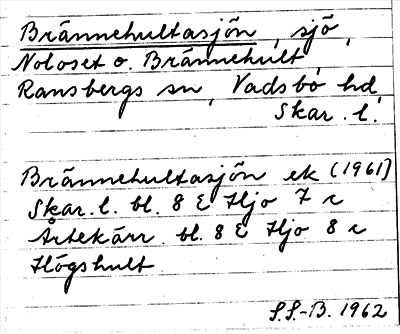 Brännehultasjön, sjö,
No loset o. Brännehult,
Ransbergs sn, Vadsbo hd,
Skar. l.
Brännehultasjön ek (1961)
Skar. l. bl. 8 E Hjo 7 c
Årtekärr bl. 8 E Hjo 8 c
Högshult
S.S.-B. 1962